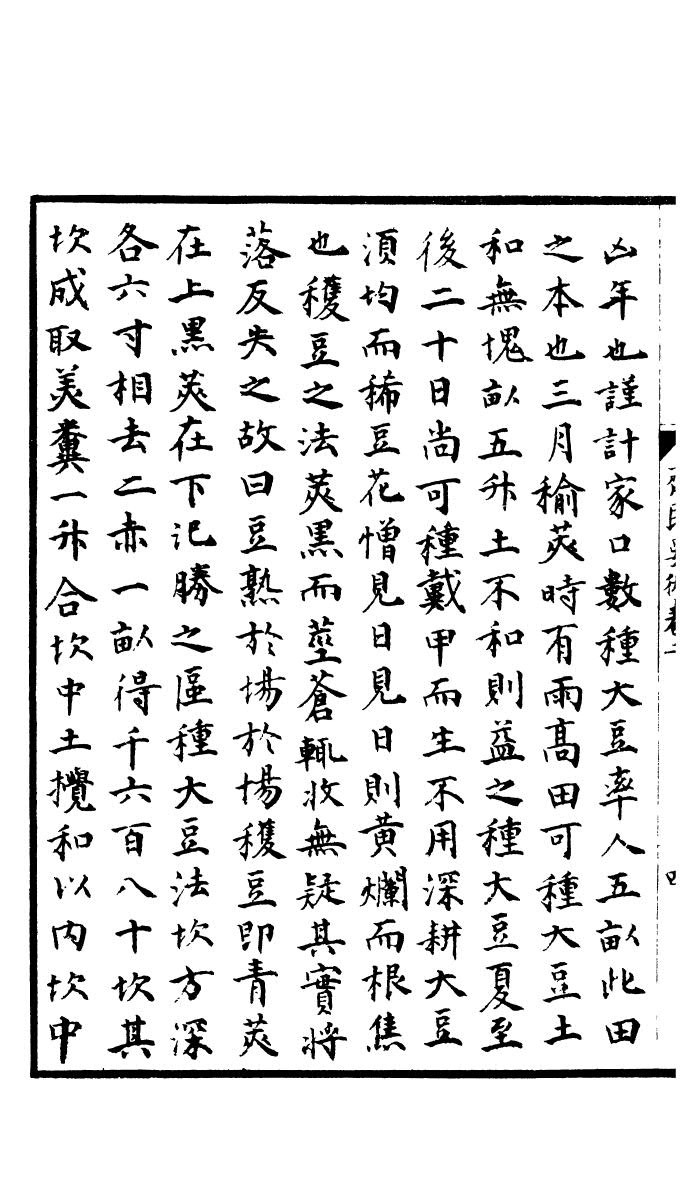 凶年也謹計家口數種大豆率人五畝此田
之本也三月榆莢時有雨高田可種大豆土
和無塊畝五升土不和則益之種大豆夏至
後二十日尚可種戴甲而生不用深耕大豆
須均而稀豆花憎見日見日則黃爛而根焦
也穫豆之法莢黑而莖蒼輒收無疑其實將
落反失之故曰豆熟於場於場穫豆即青莢
在上黑莢在下記勝之區種大豆法坎方深
各六寸相去二赤一畝得千六百八十坎其
坎成取美糞一升合坎中土攪和以内坎中